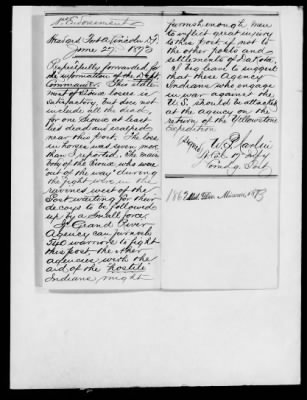 1st Endorsement
Hdqrs Fort A. Lincoln D.T.
June 27, 1873
Respectfully forwarded for
the information of the Dept.
Commander. This state-
ment of Sioux losses is
satisfactory, but does not
include all the dead,
for one Sioux at least
lies dead and scalped
near this post. The loss
in horses was even more
than I reported. The main
body of the Sioux who was
out of the way during
the fight was in the
ravines west of the
Post waiting for their
decoys to be followed
up by a small force.
If Grand River
Agency can furnish
warriors to fight
this post, the other
agencies with the
aid of the hostile
Indians might
furnish enough men
to inflict great injury
to this post if not to
the other posts and
settlements of Dakota.
I beg leave to suggest
that these Agency
Indians who engage
in war against the
U.S. should be attacked
at the agency on the
return of the Yellowstone
Expedition
Signed W. P. Carlin
Lt. Col. 17 Infy
Comdg. Post
1862 Missouri 1873